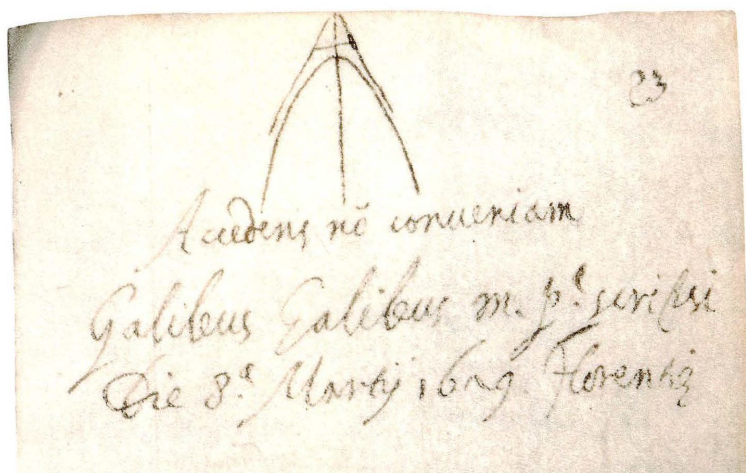 23
Accedens nō conueniam
Galileus Galileus m. p.ª scripsi
Die 8.ª Martij 1629. Florentię